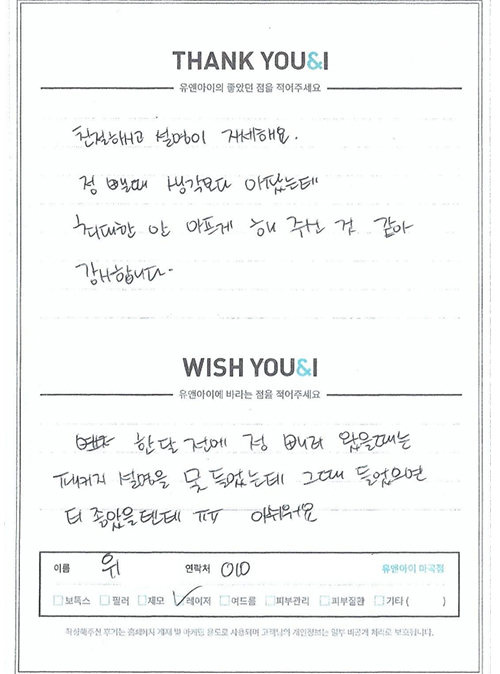 THANK YOU&I
유앤아이의 좋았던 점을 적어주세요
친절하시고 설명이 자세해요.
점 뺄때 생각보다 아팠는데
최대한 안 아프게 해 주신 것 같아
감사합니다.
WISH YOU&I
유앤아이에 바라는 점을 적어주세요
한달 전에 점 빼러 왔을때는
패키지 설명을 못 들었는데 그때 들었으면
더 좋았을텐데 ㅠㅠ 아쉬워요
이름 위 연락처 010 유앤아이 마곡점
보톡스 필러 제모 레이저 여드름 피부관리 피부질환 기타 ( )
작성해주신 후기는 홈페이지 게재 및 마케팅 용도로 사용되며 고객님의 개인정보는 일부 비공개 처리로 보호됩니다.